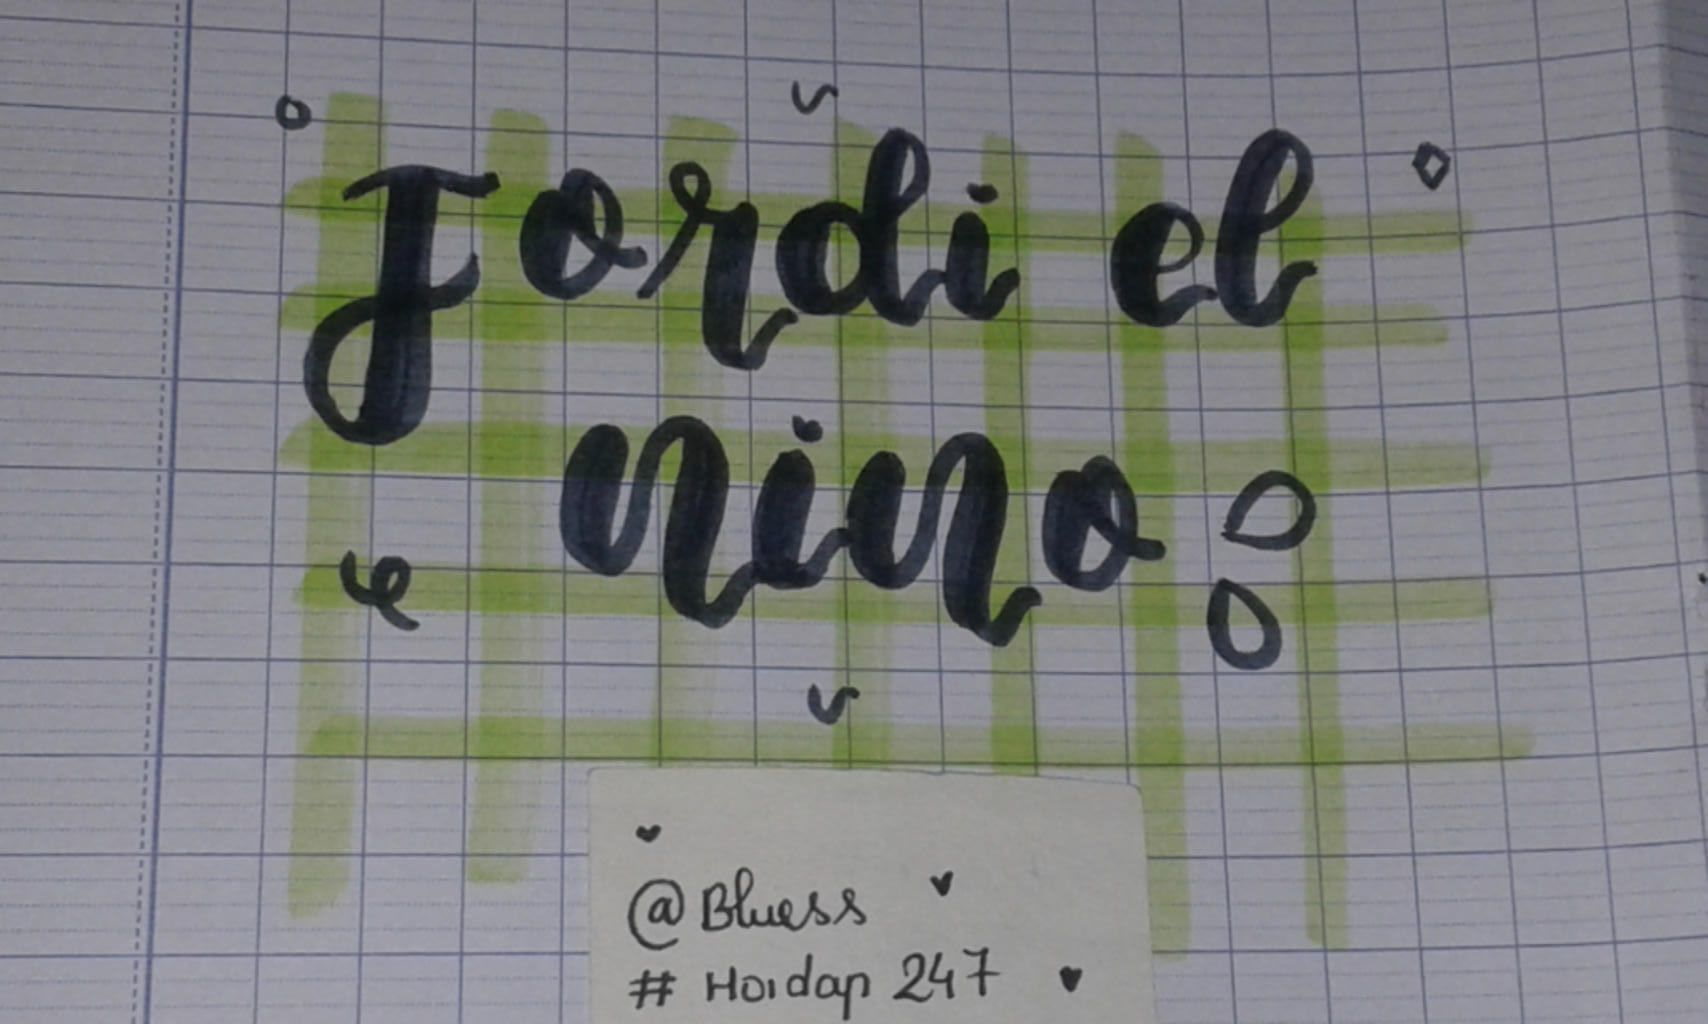 Jordi el
nino
@Bluess
# Hoidap 247